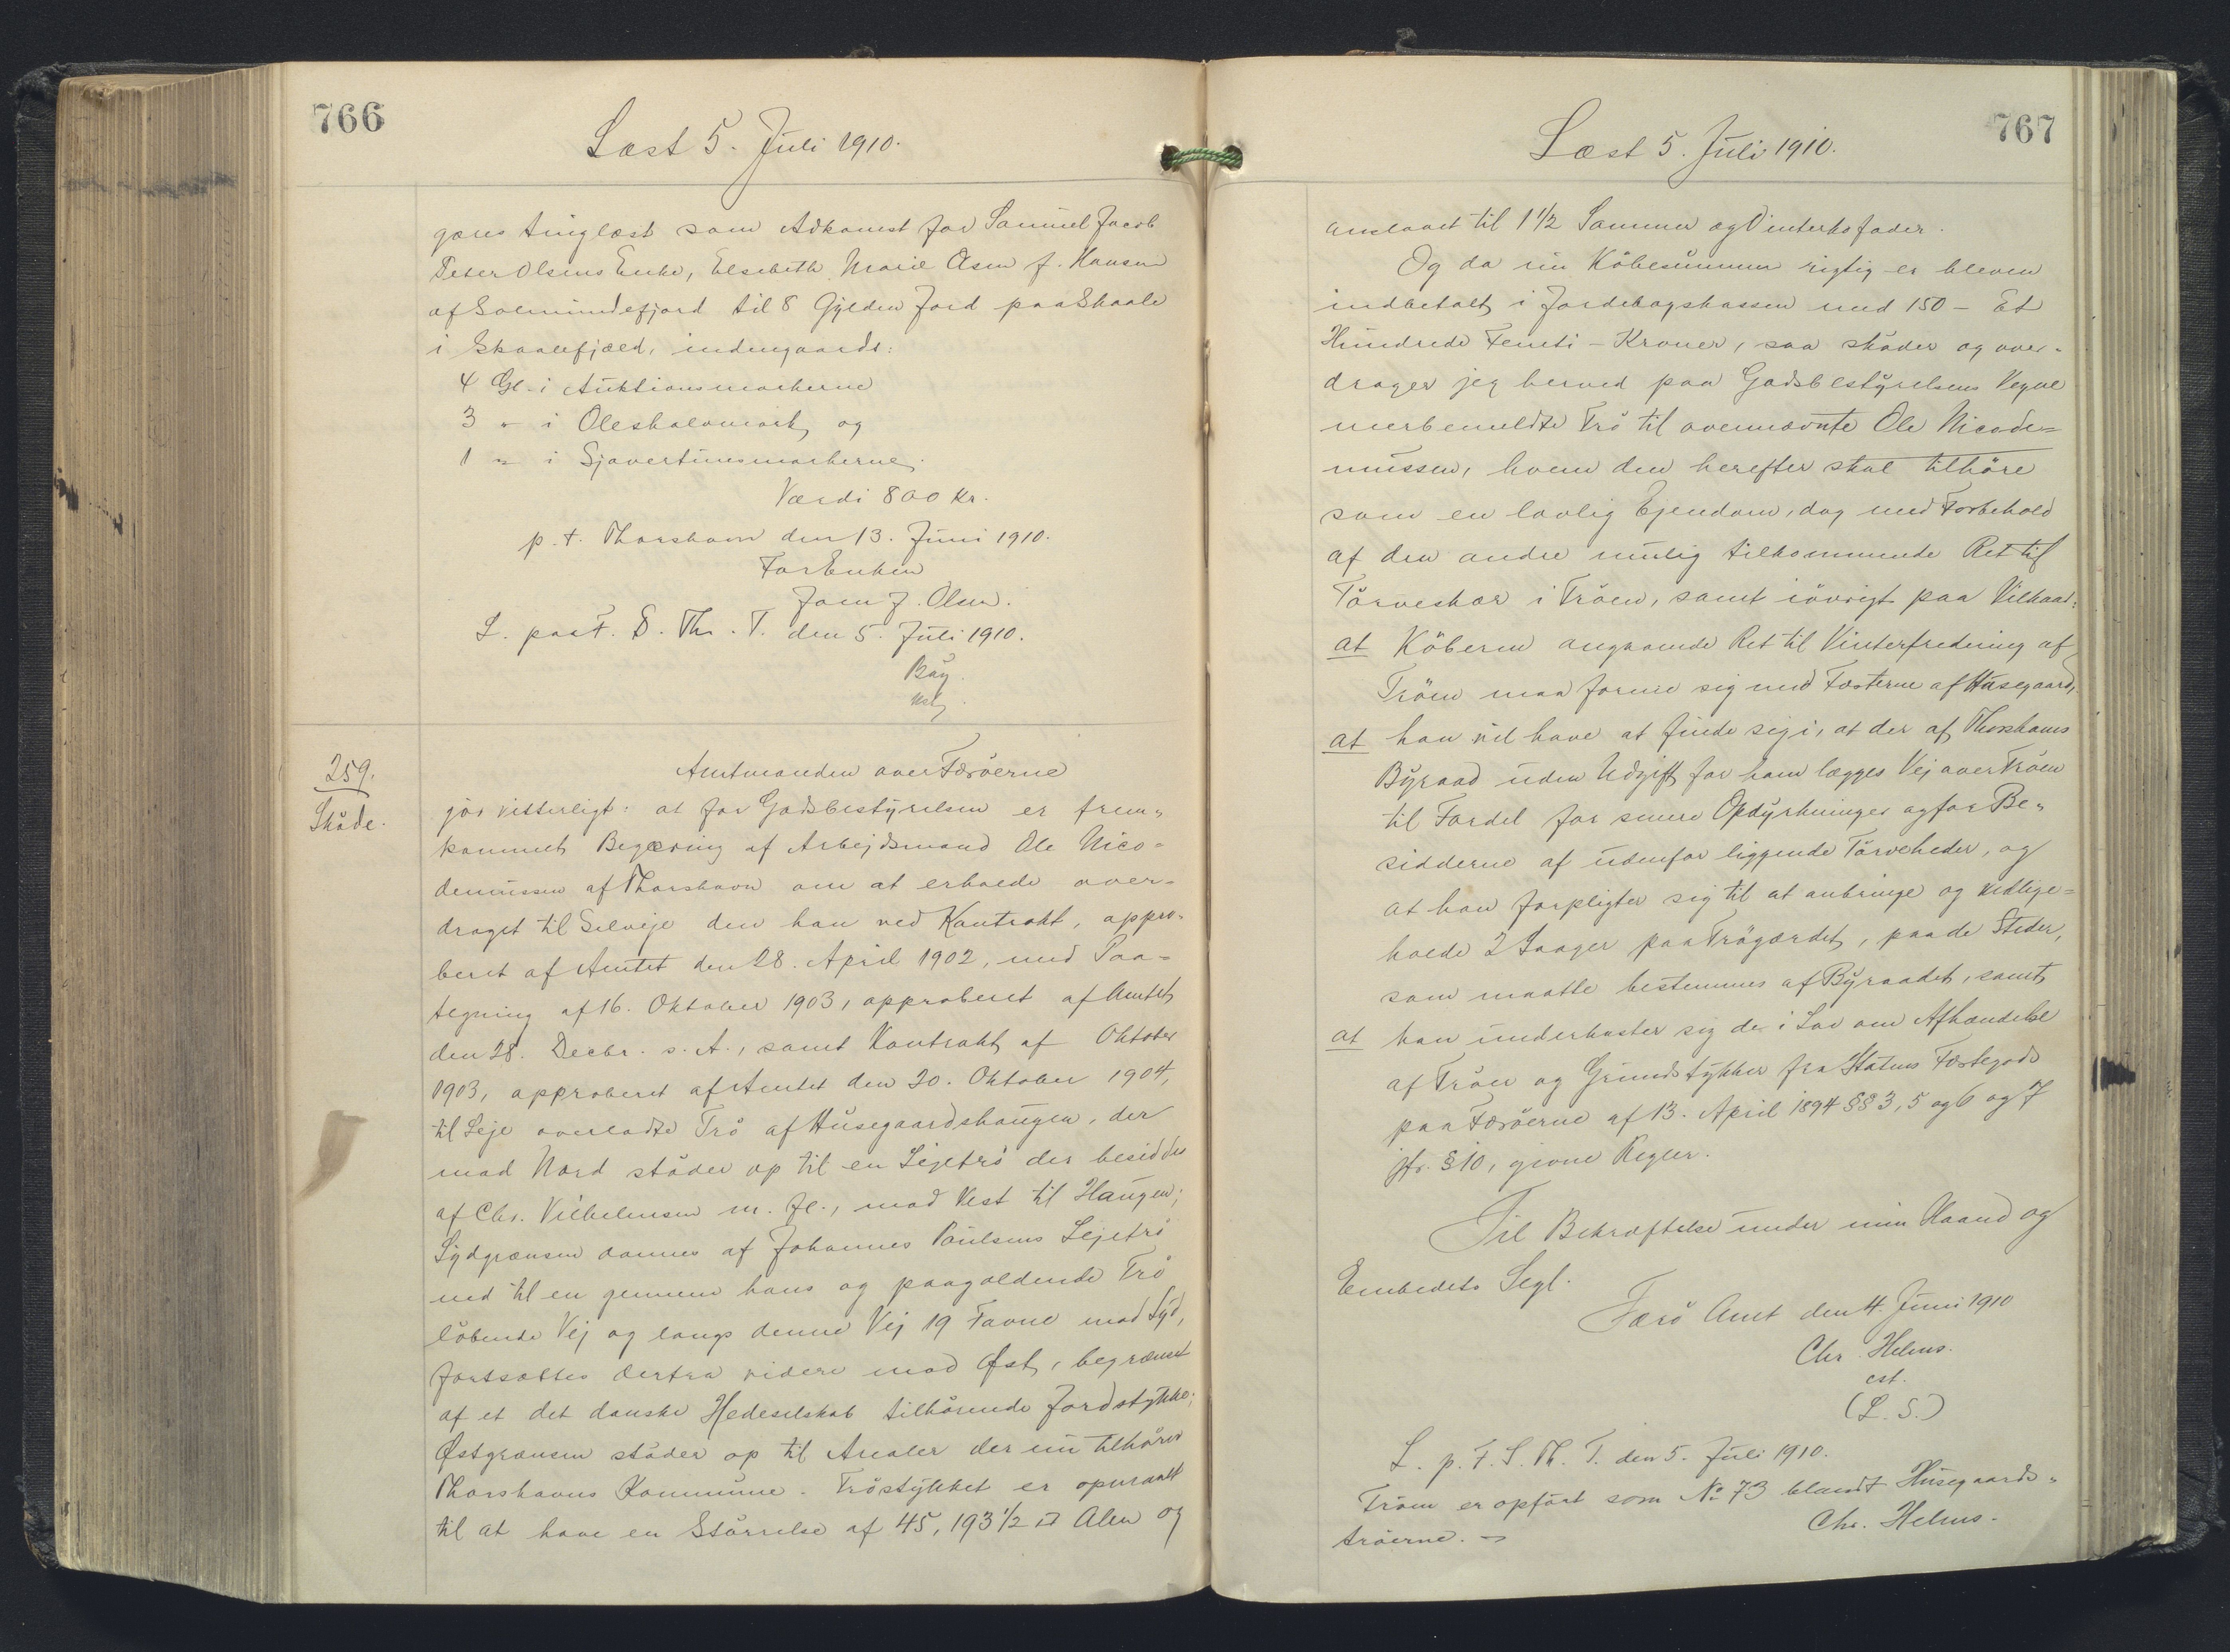 766
Læst 5. Juli 1910.
gøres tinglæst som Adkomst for Samuel Jacob
Peter Olsens Enke, Elsebeth Marie Olsen f. Hansen
af Solmundefjord til 8 Gylden Jord paa Skaale
i Skaalefjæld, indengaards:
4 Gl. i Auktionsmarkerne
3 " i Oleskalvmark, og
1 " i Sjavertunsmarkerne.
Værdi 800 Kr.
p. t. Thorshavn den 13. Juni 1910.
For Enken
Joen J. Olsen.
L. paa F. S. Th. T. den 5. Juli 1910.
Båg.
259.
Skøde.
Amtmanden over Færøerne
gør vitterligt: at for Godsbestyrelsen er frem-
kommet Begæring af Arbejdsmand Ole Nico-
demussen af Thorshavn om at erholde over-
draget til Selveje den han ved Kontrakt, appro-
beret af Amtet den 28. April 1902, med Paa-
tegning af 16. Oktober 1903, approberet af Amtet
den 28. Decbr. s. A., samt Kontrakt af Oktober
1903, approberet af Amtet den 20. Oktober 1904,
til Leje overladte Trø af Husegaardshaugen, der
mod Nord støder op til en Lejetrø der besiddes
af Chr. Vilhelmsen m. fl., mod Vest til Haugen;
Sydgrænsen dannes af Johannes Poulsens Lejetrø
ned til en gennem hans og paagældende Trø
løbende Vej og langs denne Vej 19 Favne mod Syd,
fortsættes derfra videre mod Øst, begrænset
af et det danske Hedeselskab tilhørende Jordstykke;
Østgrænsen støder op til Arealer der nu tilhører
Thorshavns Kommune. Trøstykket er opmaalt
til at have en Størrelse af 45,193 1/2 □ Alen og
767
Læst 5. Juli 1910.
anslaaet til 1 1/2 Sommer og Vinterkofoder.
Og da nu Købesummen rigtig er bleven
indbetalt i Jordebogskassen med 150 - Et
Hundrede Femti - Kroner, saa skøder og over-
drager jeg herved paa Godsbestyrelsens Vegne
merbemeldte Trø til ovennævnte Ole Nicode-
mussen, hvem den herefter skal tilhøre
som en lovlig Ejendom, dog med Forbehold
af den andre mulig tilkommende Ret til
Tørveskær i Trøen, samt iøvrigt paa Vilkaar:
at Køberen angaaende Ret til Vinterfredning af
Trøen maa forene sig med Fæsterne af Husegaard,
at han vil have at finde sig i, at der af Thorshavns
Byraad uden Udgift for ham lægges Vej over Trøen
til Fordel for senere Opdyrkninger og for Be-
sidderne af udenfor liggende Tørveheder, og
at han forpligter sig til at anbringe og vedlige-
holde 2 Laager paa Trøgærdet, paa de Steder,
som maatte bestemmes af Byraadet, samt
at han underkaster sig de i Lov om Afhændelse
af Trøer og Grundstykker fra Statens Fæstegods
paa Færøerne af 13. April 1894 §§ 3, 5 og 6 og 7
jfr. § 10, givne Regler.
Til Bekræftelse under min Haand og
Embedets Segl.
Færø Amt den 4. Juni 1910
Chr. Helms.
cst.
(L. S.)
L. p. F. S. Th. T. den 5. Juli 1910.
Trøen er opført som No 73 blandt Husegaards-
trøerne. -
Chr. Helms.